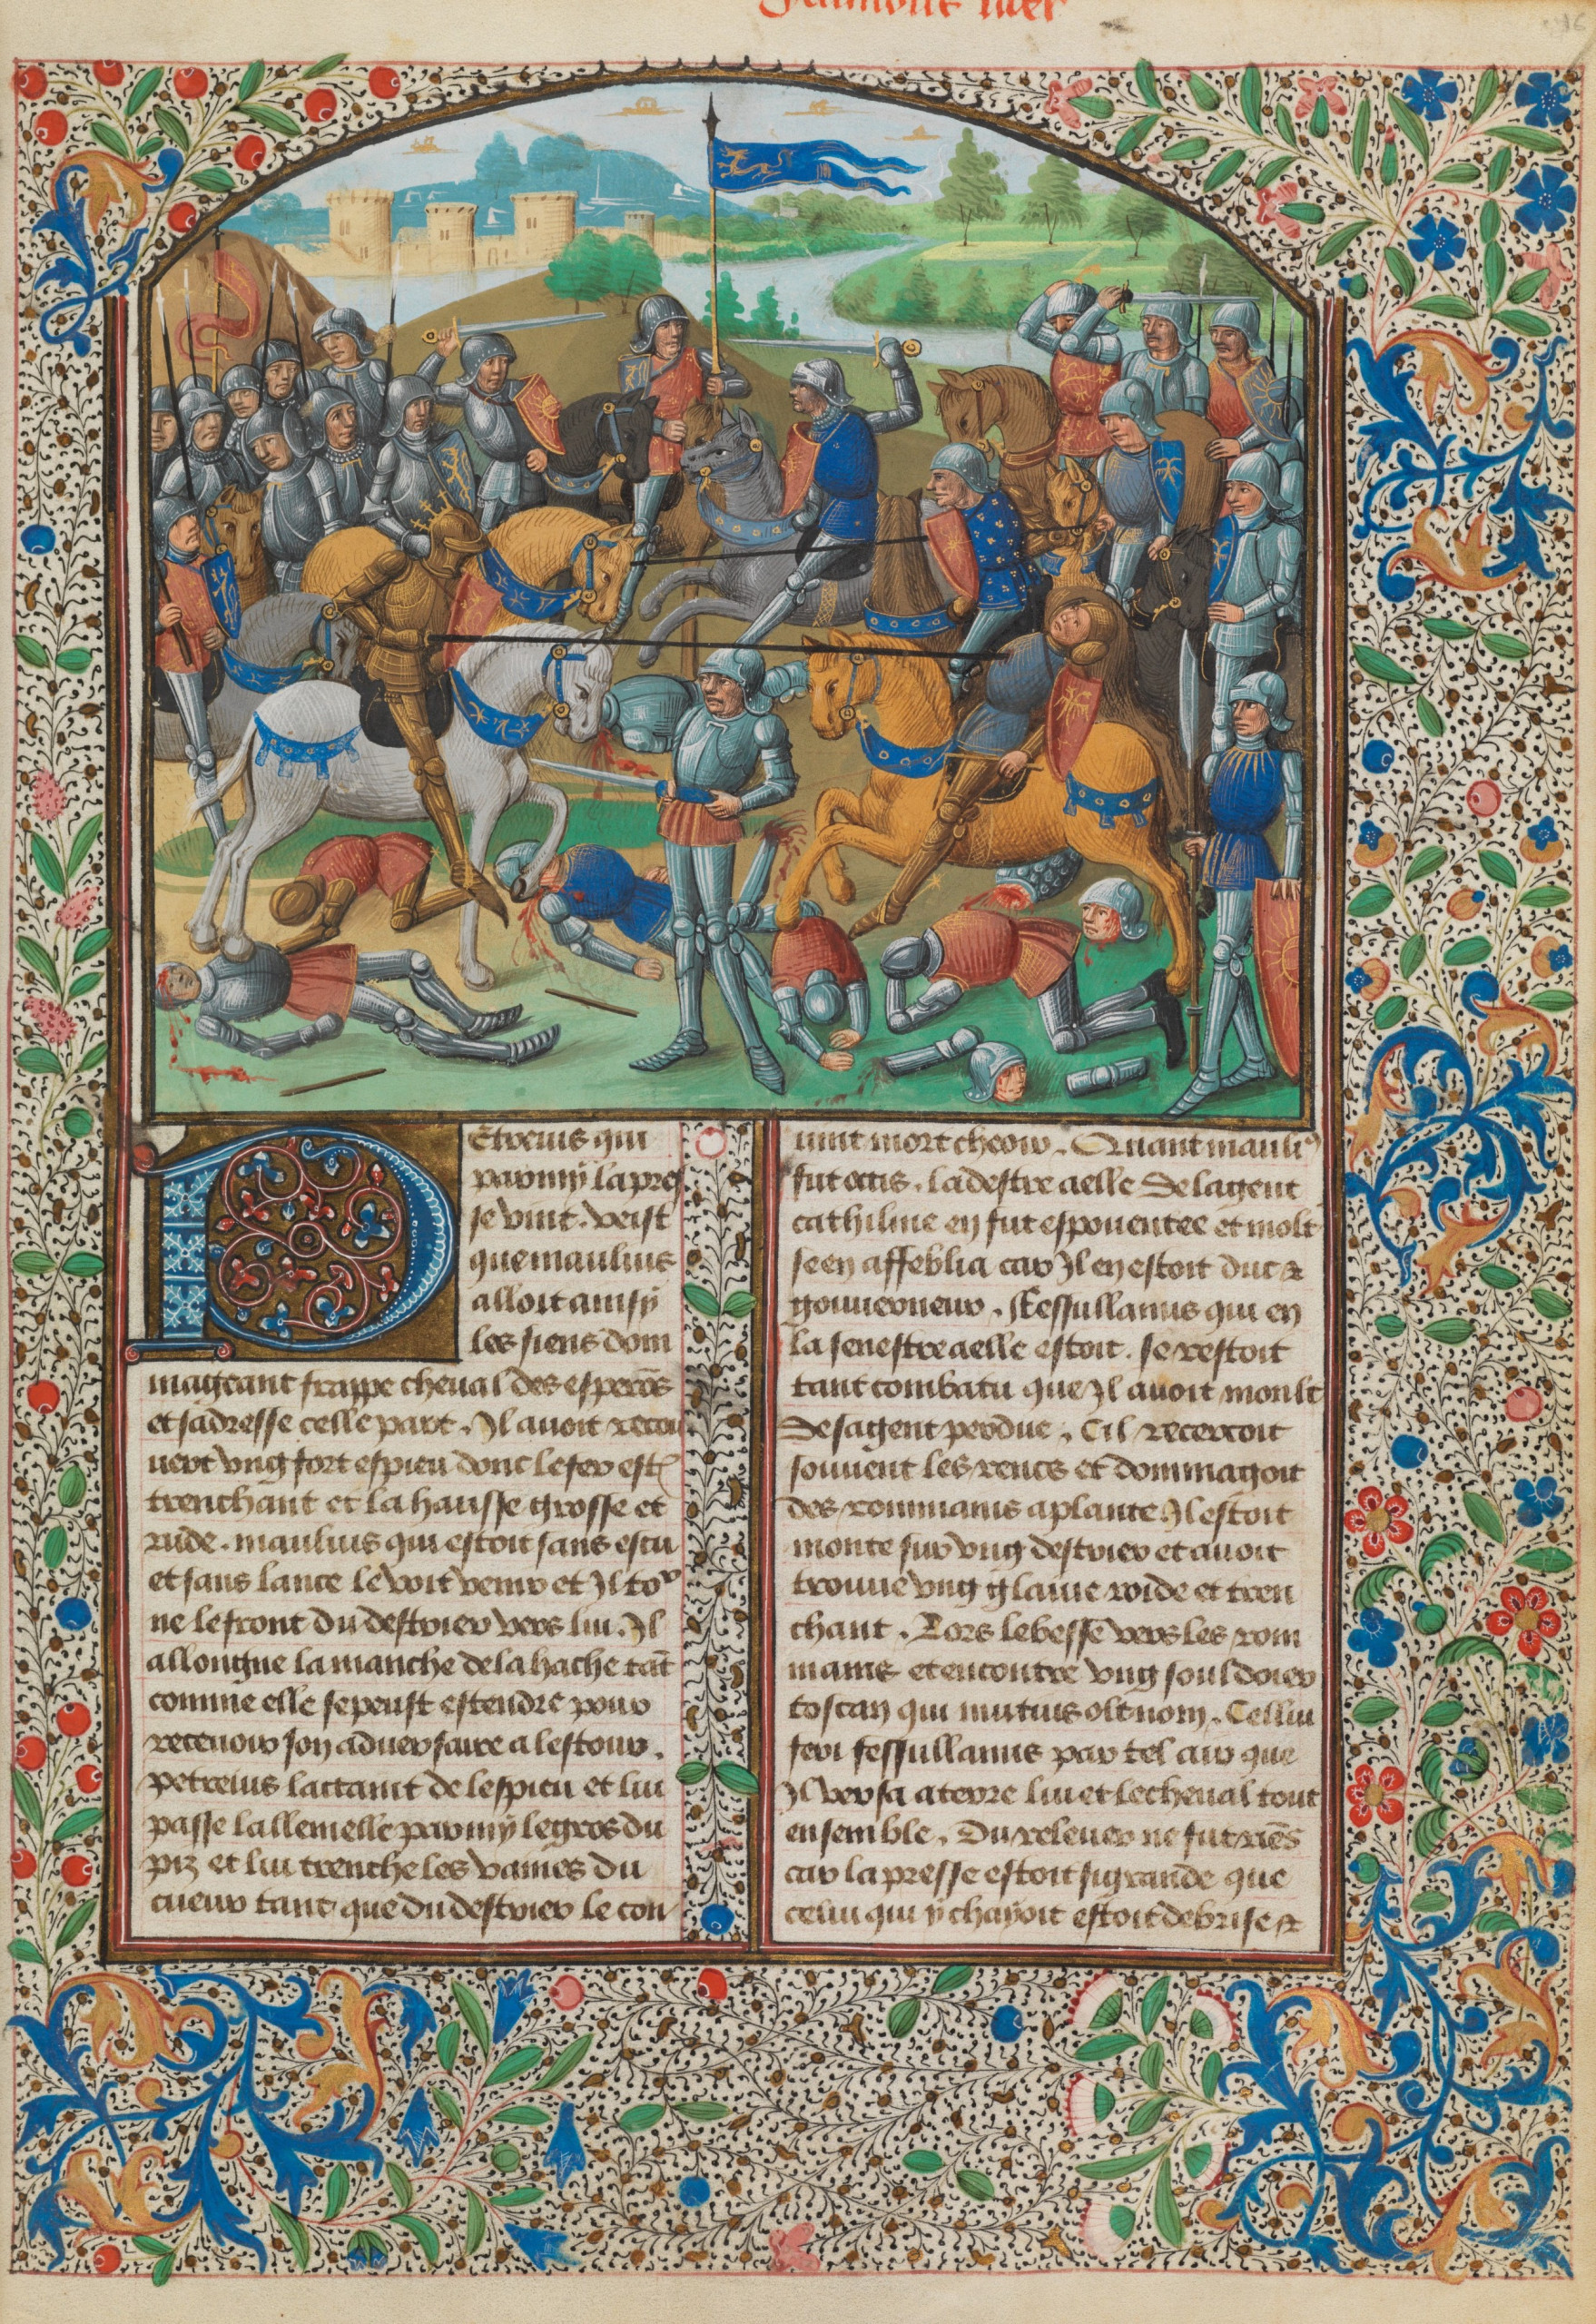 Petreius qui
parmy la pres
se vint . veist
que manlius
alloit ainsy
les siens dom
mageant frappe cheual des esperõs
et sadresse celle part . Il auoit recou
uert vng fort espieu donc le fer est
trenchant et la hansse grosse et
rude . manlius qui estoit sans escu
et sans lance le voit venir et Il to^r
ne le front du destrier vers lui . Il
allongue la manche de la hache tãt
comme elle se peust estendre pour
receuoir son aduersaire a lestour .
petreius lactaint de lespieu et lui
passe lallemelle parmy le gros du
piz et lui trenche les vaines du
cueur tant que du destrier le con
uint mort cheoir . Quant manli⁹
fut occis . la destre aelle de la gent
cathiline en fut espouentee et molt
seen affeblia car Il en estoit duc &
gouuerneur . Fessullanus qui en
la senestre aelle estoit . se restoit
tant combatu que Il auoit moult
de sa gent perdue . Cil recercoit
souuent les rencs et dommagoit
des rommains a plante Il estoit
monte sur vng destrier et auoit
trouue vng glaiue roide et tren
chant . Lors le besse vers les rom
mains et encontre vng souldoier
toscan qui mutius olt nom . Cellui
feri fessullanus par tel air que
Il versa a terre lui et le cheual tout
ensemble . Du releuer ne fut riẽs
car la presse estoit si grande que
celui qui y chayoit estoit debrise &